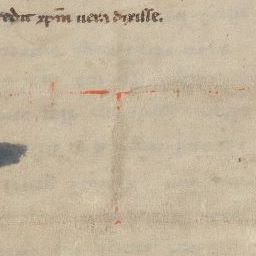 credit xpm uera dixisse.